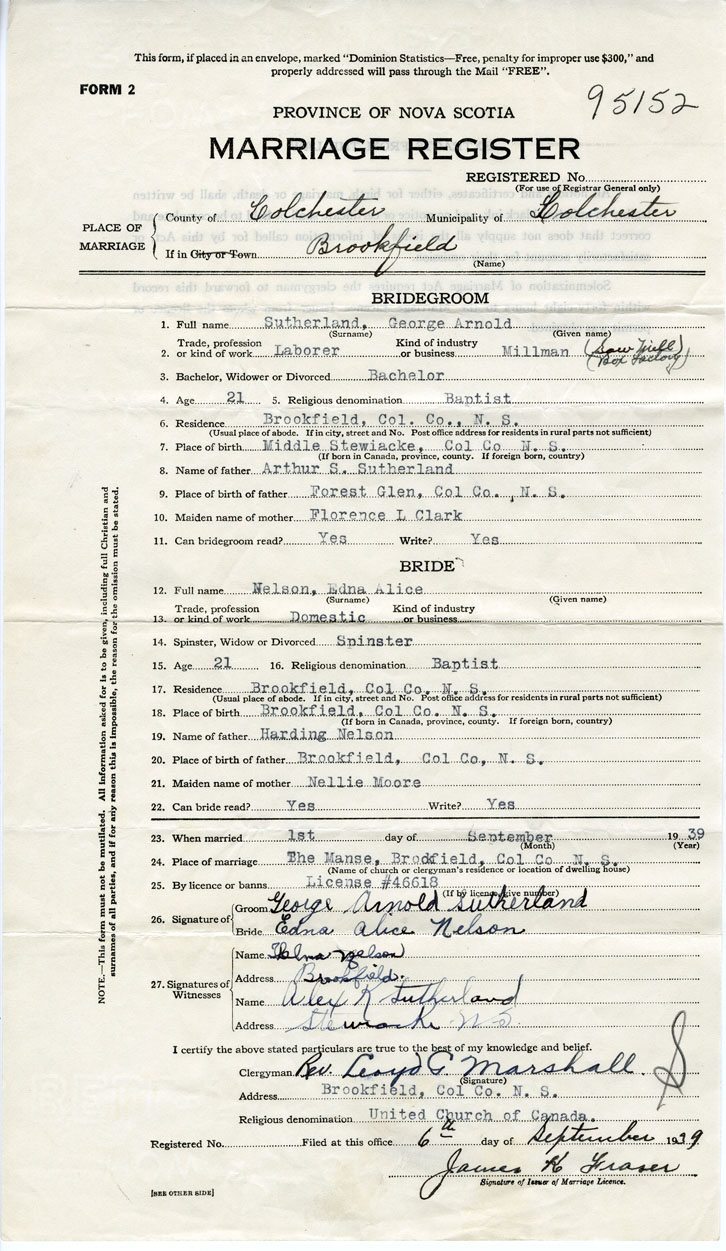 This form, if placed in an envelope, marked "Dominion Statistics—Free, penalty for improper use $300," and
properly addressed will pass through the Mail "FREE".
FORM 2
95152
PROVINCE OF NOVA SCOTIA
MARRIAGE REGISTER
REGISTERED No.
(For use of Registrar General only)
PLACE OF MARRIAGE
County of Colchester Municipality of Colchester
If in City or Town Brookfield
(Name)
BRIDEGROOM
1. Full name Sutherland, George Arnold
(Surname) (Given name)
2. Trade, profession or kind of work Laborer Kind of industry or business Millman (Saw Mill) (Box Factory)
3. Bachelor, Widower or Divorced Bachelor
4. Age 21 5. Religious denomination Baptist
6. Residence Brookfield, Col. Co., N. S.
(Usual place of abode. If in city, street and No. Post office address for residents in rural parts not sufficient)
7. Place of birth Middle Stewiacke, Col Co N. S.
(If born in Canada, province, county. If foreign born, country)
8. Name of father Arthur S. Sutherland
9. Place of birth of father Forest Glen, Col Co., N. S.
10. Maiden name of mother Florence L Clark
11. Can bridegroom read? Yes Write? Yes
BRIDE
12. Full name Nelson, Edna Alice
(Surname) (Given name)
13. Trade, profession or kind of work Domestic Kind of industry or business
14. Spinster, Widow or Divorced Spinster
15. Age 21 16. Religious denomination Baptist
17. Residence Brookfield, Col Co. N. S.
(Usual place of abode. If in city, street and No. Post office address for residents in rural parts not sufficient)
18. Place of birth Brookfield, Col Co. N. S.
(If born in Canada, province, county. If foreign born, country)
19. Name of father Harding Nelson
20. Place of birth of father Brookfield, Col Co, N. S.
21. Maiden name of mother Nellie Moore
22. Can bride read? Yes Write? Yes
23. When married 1st day of September 1939
(Month) (Year)
24. Place of marriage The Manse, Brookfield, Col Co N. S.
(Name of church or clergyman's residence or location of dwelling house)
25. By licence or banns License #46618
(If by licence, give number)
26. Signature of
Groom George Arnold Sutherland
Bride Edna Alice Nelson
27. Signatures of Witnesses
Name Nelson
Address Brookfield.
Name Alex R Sutherland
Address Stewiacke N S
I certify the above stated particulars are true to the best of my knowledge and belief.
Clergyman Rev. Lloyd G Marshall.
(Signature)
Address Brookfield, Col Co. N. S.
Religious denomination United Church of Canada.
Registered No. Filed at this office 6th day of September 1939
James K Fraser
Signature of Issuer of Marriage Licence.
[SEE OTHER SIDE]
NOTE.—This form must not be mutilated. All information asked for is to be given, including full Christian and
surnames of all parties, and if for any reason this is impossible, the reason for the omission must be stated.